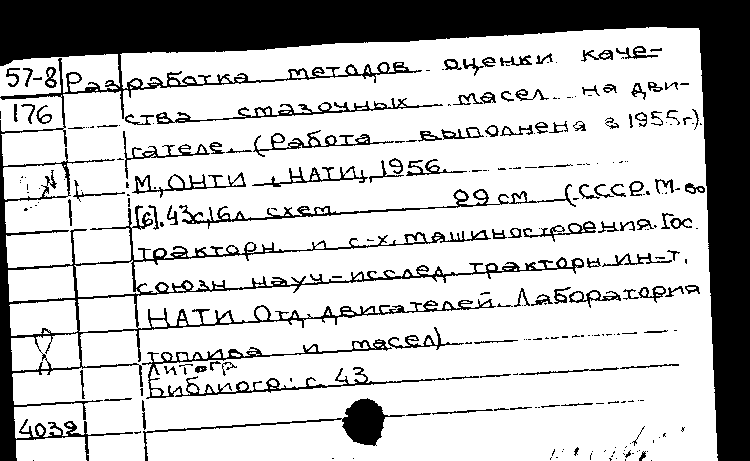 57-8 Разработка методов оценки каче-
176 ства смазочных масел на дви-
гателе. (Работа выполнена в 1955г.)
М., ОНТИ [НАТИ], 1956.
[6], 43с, 16л схем. 29 см (СССР. М-во
тракторн. и с.-х. машиностроения. Гос.
союзн науч-исслед. тракторн. ин-т.
НАТИ. Отд. двигателей. Лаборатория
топлива и масел)
Литогр
Библиогр.: с. 43
4032